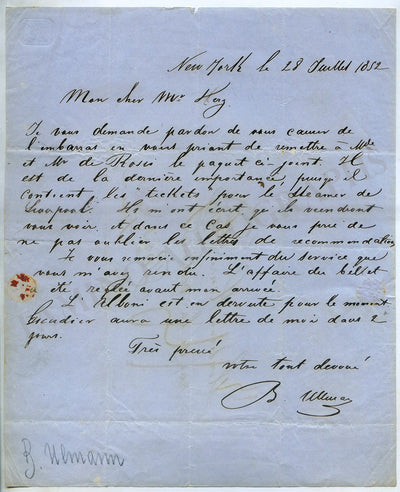 New York le 28 Juillet 1852
Mon cher Mr Herz
Je vous demande pardon de vous causer de
l'embarras en vous priant de remettre à Mde
et Mr de Rossi le paquet ci-joint. Il
est de la dernière importance, puisqu'il
contient les "tickets" pour le Steamer de
Liverpool. Ils m'ont écrit qu'ils viendront
vous voir, et dans ce cas je vous prie de
ne pas oublier les lettres de recommendation
Je vous remercie infiniment du service que
vous m'avez rendu. L'affaire du billet
a été reglée avant mon arrivée.
L'Alboni est en deroute pour le moment
Escudier aura une lettre de moi dans 2
jours.
Très pressé
votre tout devoué
B. Ullman
B. Ulmann